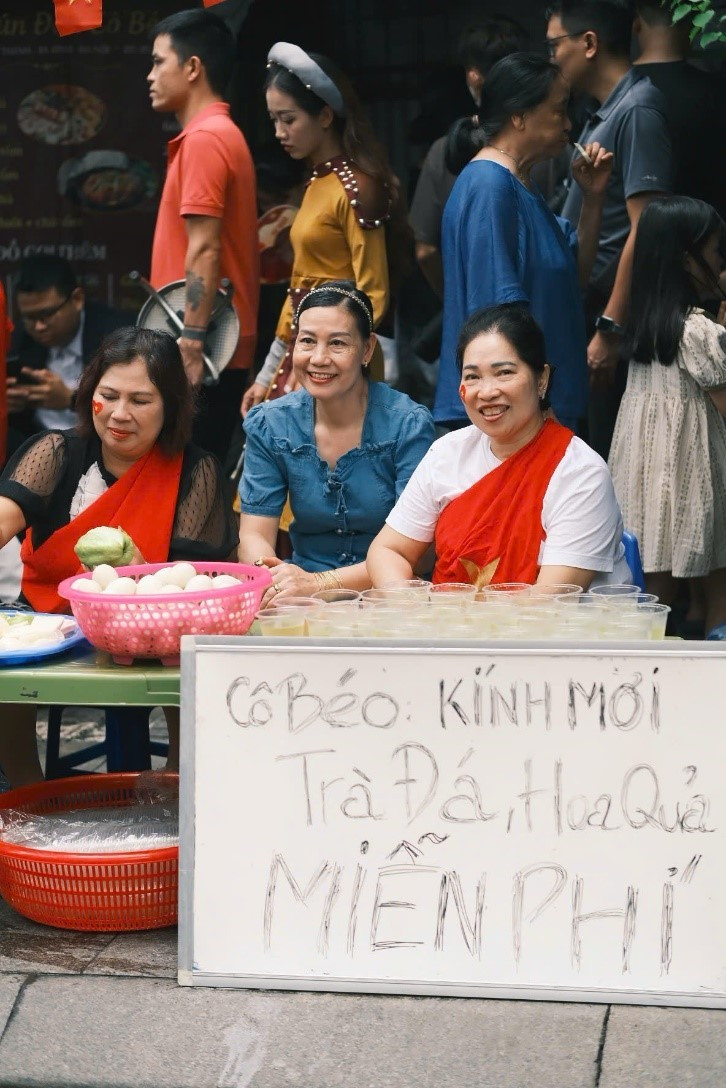 Cô Bé
Cô Béo: KÍNH MỜI
Trà Đá, Hoa Quả
MIỄN PHÍ